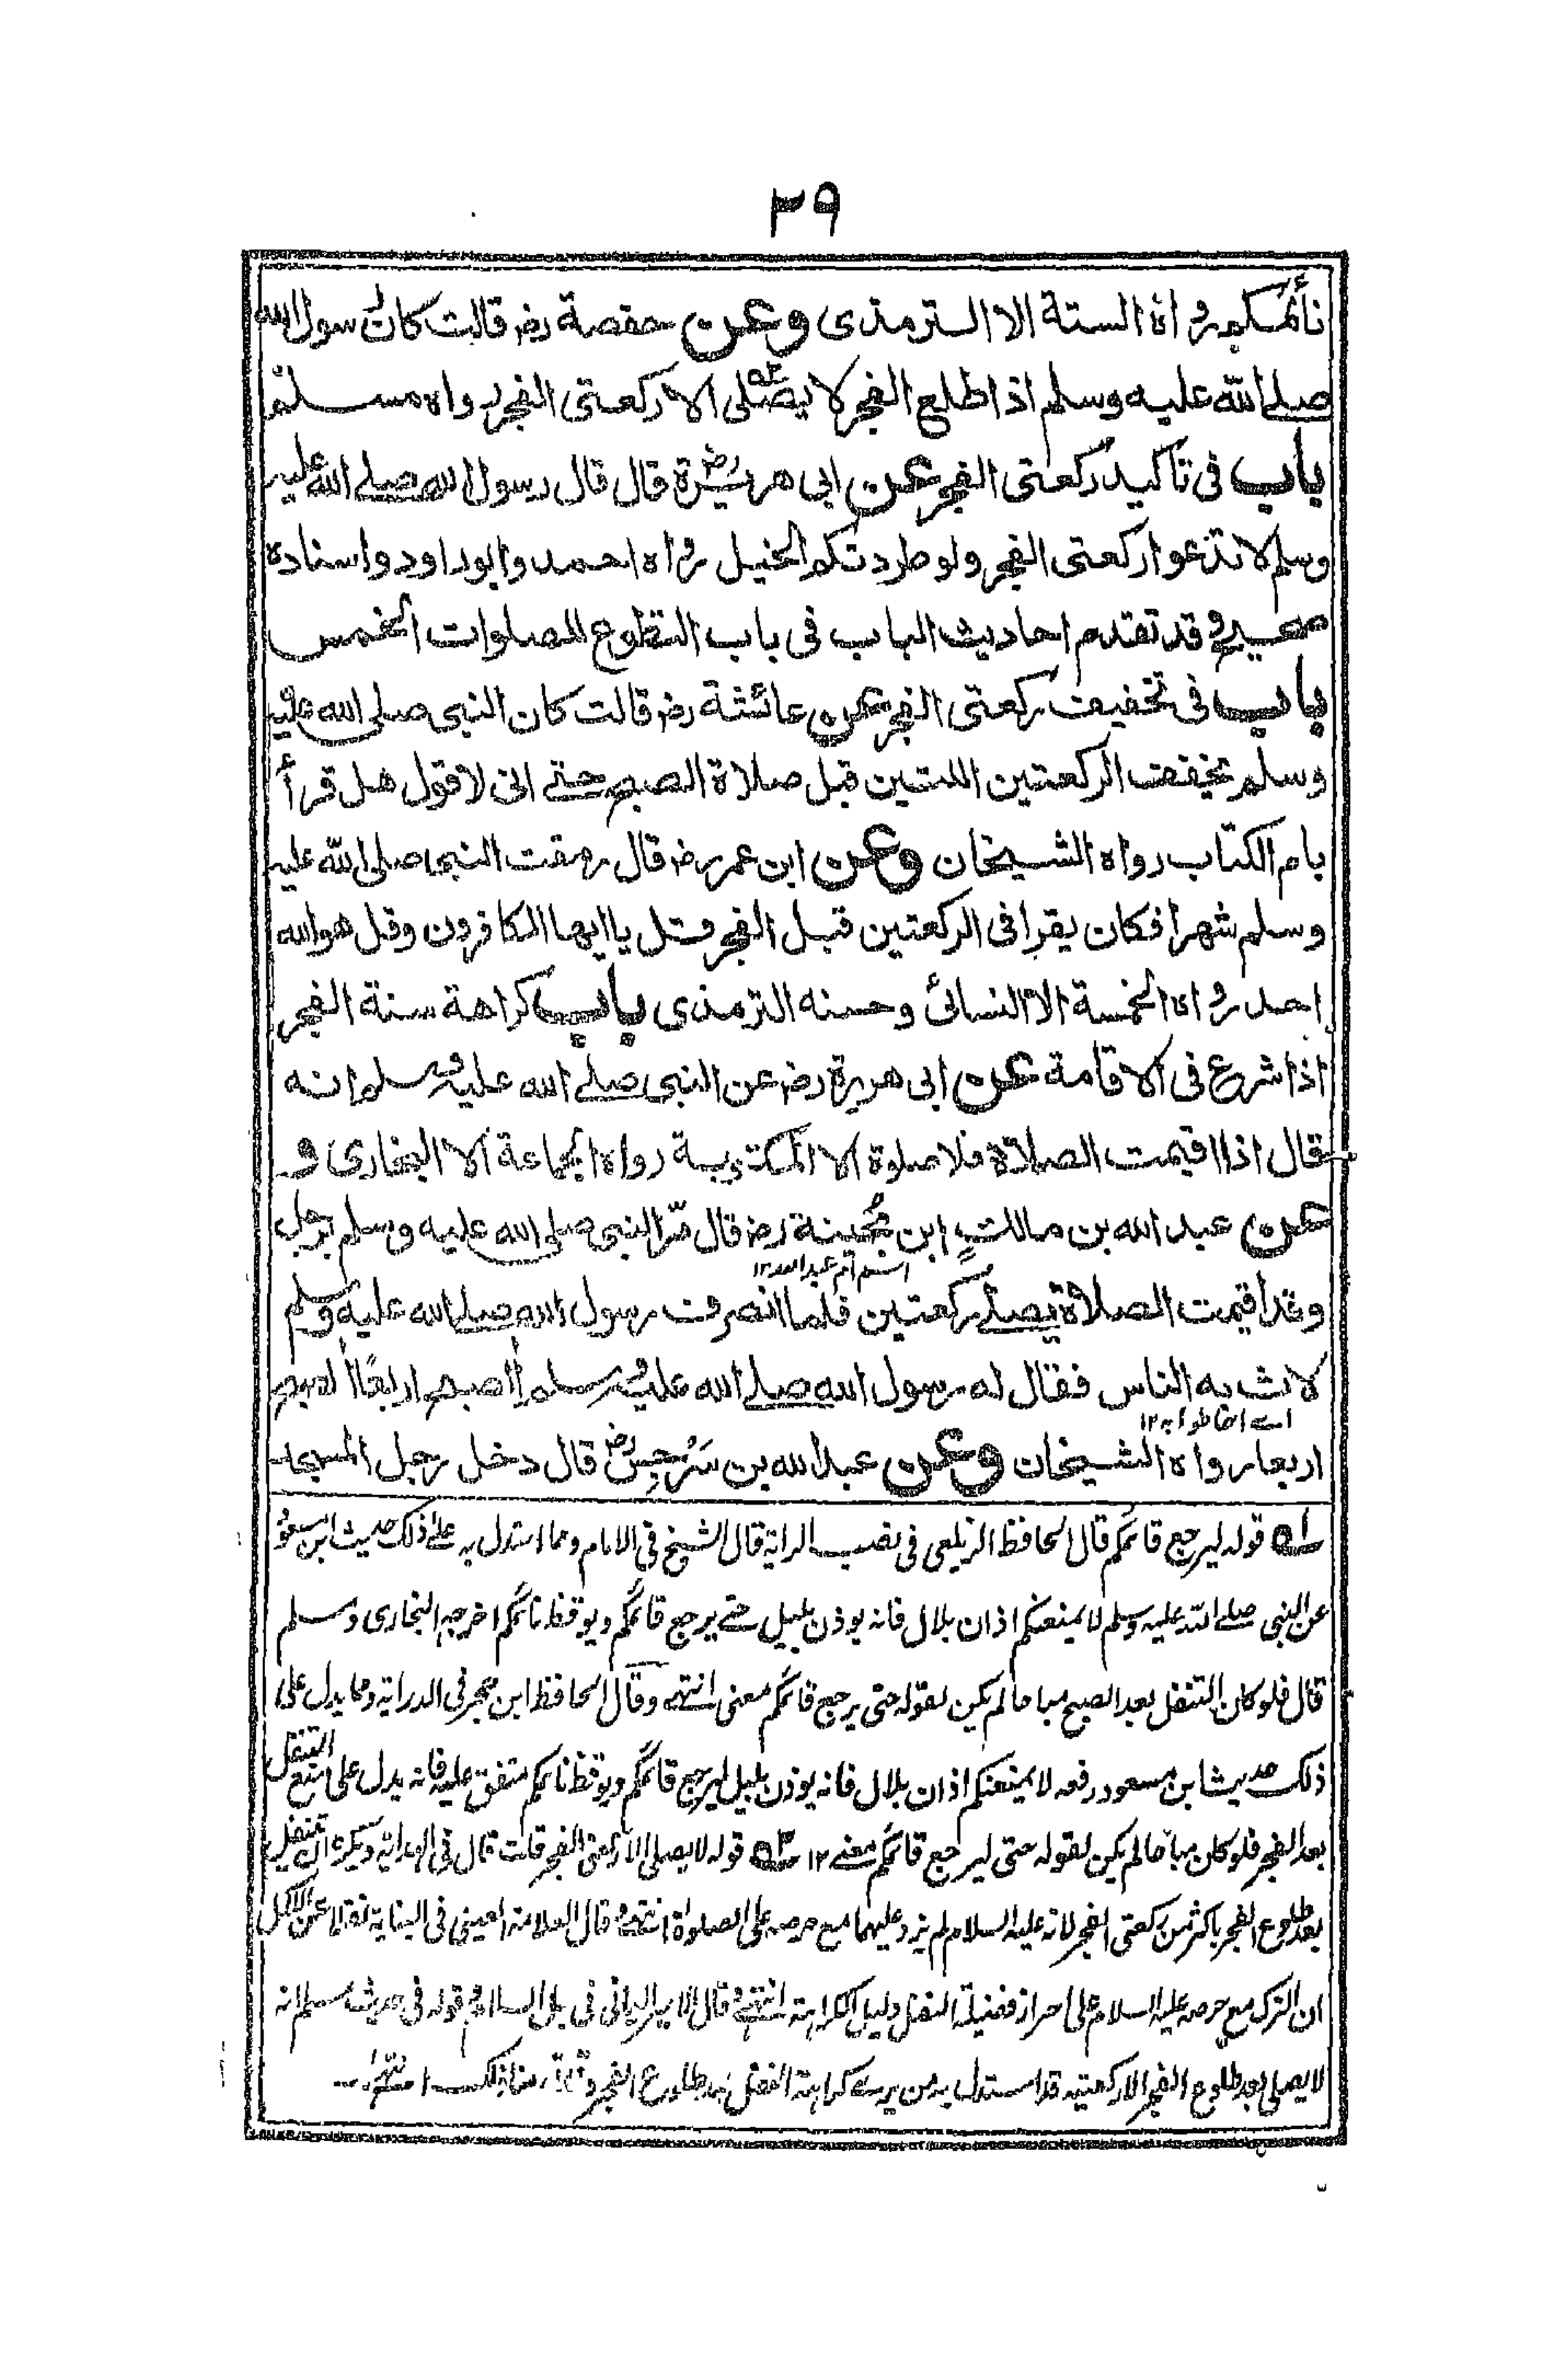 ٣٩
نائمكم رواه الستة الا الترمذى وعن حفصة رض قالت كان رسول الله
صلے الله عليه وسلم اذا طلع الفجر لا يصلى الا ركعتى الفجر رواه مسلم
باب فى تاكيد ركعتى الفجر عن ابى هريرة رض قال قال رسول الله صلے الله عليه
وسلم لا تدعوا ركعتى الفجر ولو طردتكم الخيل رواه احمد وابوداود واسناده
صحيح وقد تقدم احاديث الباب فى باب التطوع للصلوات الخمس
باب فى تخفيف ركعتى الفجر عن عائشة رض قالت كان النبى صلى الله عليه
وسلم يخفف الركعتين اللتين قبل صلاة الصبح حتے انى لاقول هل قرأ
بام الكتاب رواه الشيخان وعن ابن عمر رض قال رمقت النبى صلى الله عليه
وسلم شهرا فكان يقرا فى الركعتين قبل الفجر قل ياايها الكافرون وقل هو الله
احد رواه الخمسة الا النسائى وحسنه الترمذى باب كراهة سنة الفجر
اذا شرع فى الاقامة عن ابى هريرة رض عن النبى صلے الله عليه وسلم انه
قال اذا اقيمت الصلاة فلا صلوة الا المكتوبة رواه الجماعة الا البخارى و
عن عبد الله بن مالكٍ ابن بُحينة رض قال مرّ النبى صلى الله عليه وسلم برجل
اسم ام عبد الله ١٢
وقد اقيمت الصلاة يصلے ركعتين فلما انصرف رسول الله صلے الله عليه وسلم
لاث به الناس فقال له رسول الله صلے الله عليه وسلم أالصبح اربعًا أالصبح
اے احاطوا به ١٢
اربعا رواه الشيخان وعن عبد الله بن سَرْجِس رض قال دخل رجل المسجد
لـه قوله ليرجع قائمكم قال الحافظ الزيلعى فى نصب الراية قال الشيخ فى الامام ومما استدل به علے ذلك حديث ابن مسعود
عن النبى صلے الله عليه وسلم لا يمنعنكم اذان بلال فانه يوذن بليل حتے يرجع قائمكم ويوقظ نائمكم اخرجه البخارى ومسلم
قال فلو كان التنفل بعد الصبح مباحا لم يكن لقوله حتى يرجع قائمكم معنى انتهے وقال الحافظ ابن حجر فى الدراية ومما يدل على
ذلك حديث ابن مسعود رفعه لا يمنعنكم اذان بلال فانه يوذن بليل ليرجع قائمكم ويوقظ نائمكم متفق عليه فانه يدل على منع التنفل
بعد الفجر فلو كان مباحا لم يكن لقوله حتى ليرجع قائمكم معنے ١٢ ٢ـه قوله لا يصلى الا ركعتى الفجر قلت قال فى الهداية ويكره ان يتنفل
بعد طلوع الفجر باكثر من ركعتى الفجر لانه عليه السلام لم يزد عليهما مع حرصه على الصلواة انتهے وقال العلامة العينى فى البناية نقلا عن الاكمل
ان الترك مع حرصه عليه السلام على احراز فضيلة النفل دليل الكراهة انتهے وقال الامير اليمانى فى سبل السلام وقوله فى حديث مسلم انه
لا يصلى بعد طلوع الفجر الا ركعتيه قد استدل به من يرے كراهة النفل بعد طلوع الفجر وقد ذلك انتهے